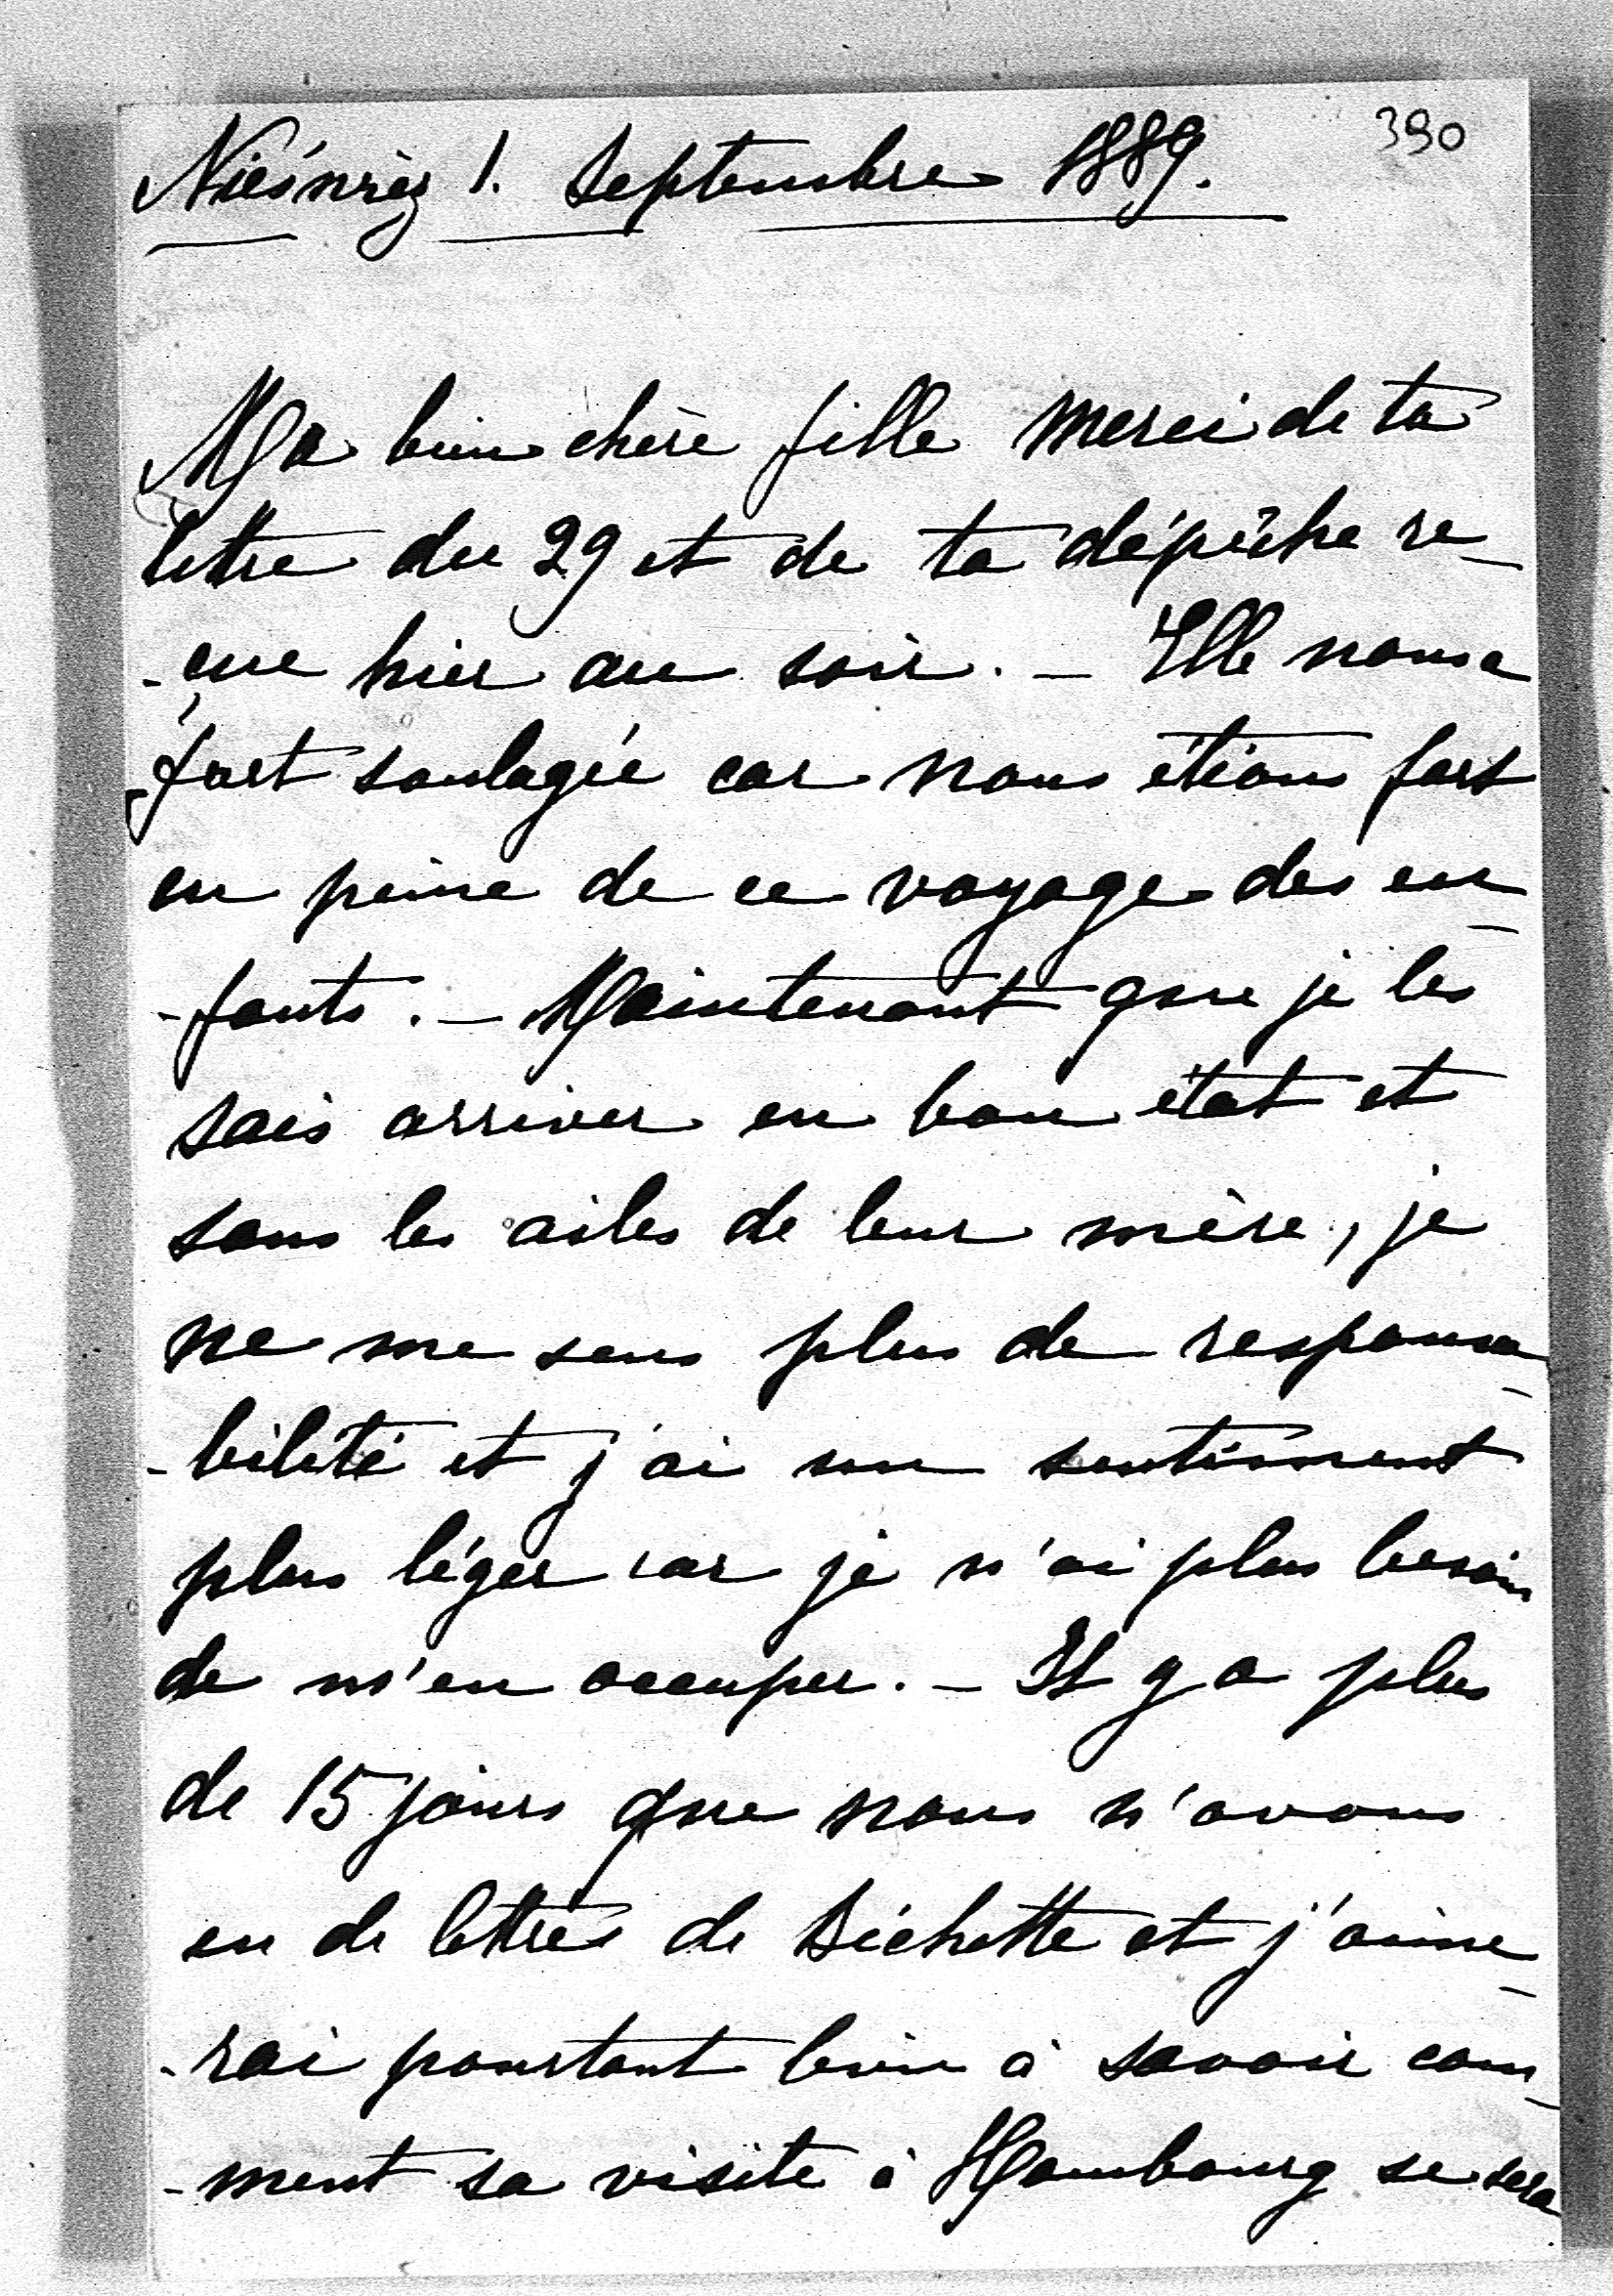 390
Nieśwież 1. Septembre 1889.
Ma bien chère fille merci de ta
lettre du 29 et de ta dépêche re-
-çue hier au soir. - Elle nous a
fort soulagée car nous étions fort
en peine de ce voyage des en-
-fants. - Maintenant que je les
sais arriver en bon état et
sous les ailes de leur mère, je
ne me sens plus de responsa-
-bilité et j'ai un sentiment
plus léger car je n'ai plus besoin
de m'en occuper. - Il y a plus
de 15 jours que nous n'avons
eu de lettres de Bichette et j'aime-
-rai pourtant bien à savoir com-
-ment sa visite à Hambourg se sera